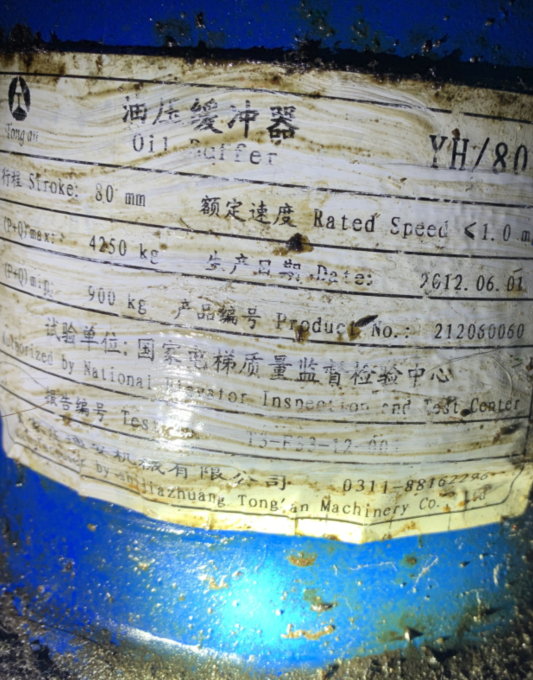 Tong'an
油压缓冲器
Oil Buffer
YH/80
行程 Stroke: 80 mm
额定速度 Rated Speed ≤1.0 m
(P+Q)max: 4250 kg
生产日期 Date: 2012.06.01
(P+Q)min: 900 kg
产品编号 Product No.: 212060060
试验单位:国家电梯质量监督检验中心
by National Elevator Inspection and Test Center
报告编号 Test
机械有限公司 0311-8816
by Shijiazhuang Tong'an Machinery Co., Ltd